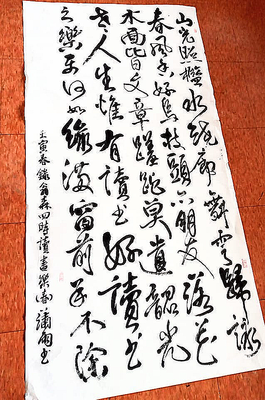 山光照檻水繞廊舞雩歸詠
春風香好鳥枝頭亦朋友落花
水面皆文章蹉跎莫遣韶光
老人生惟有讀書好讀書
之樂乐何如綠滿窗前草不除
壬寅春錄翁森四時讀書樂春 书